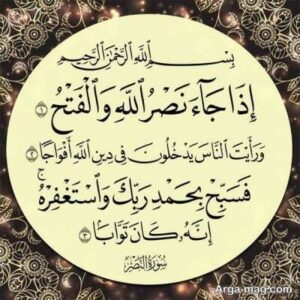 بِسْمِ اللَّهِ الرَّحْمَٰنِ الرَّحِيمِ
إِذَا جَاءَ نَصْرُ اللَّهِ وَالْفَتْحُ ﴿١﴾
وَرَأَيْتَ النَّاسَ يَدْخُلُونَ فِي دِينِ اللَّهِ أَفْوَاجًا ﴿٢﴾
فَسَبِّحْ بِحَمْدِ رَبِّكَ وَاسْتَغْفِرْهُ ۚ
إِنَّهُ كَانَ تَوَّابًا ﴿٣﴾
سُورَةُ النَّصْرِ
Arga-mag.com